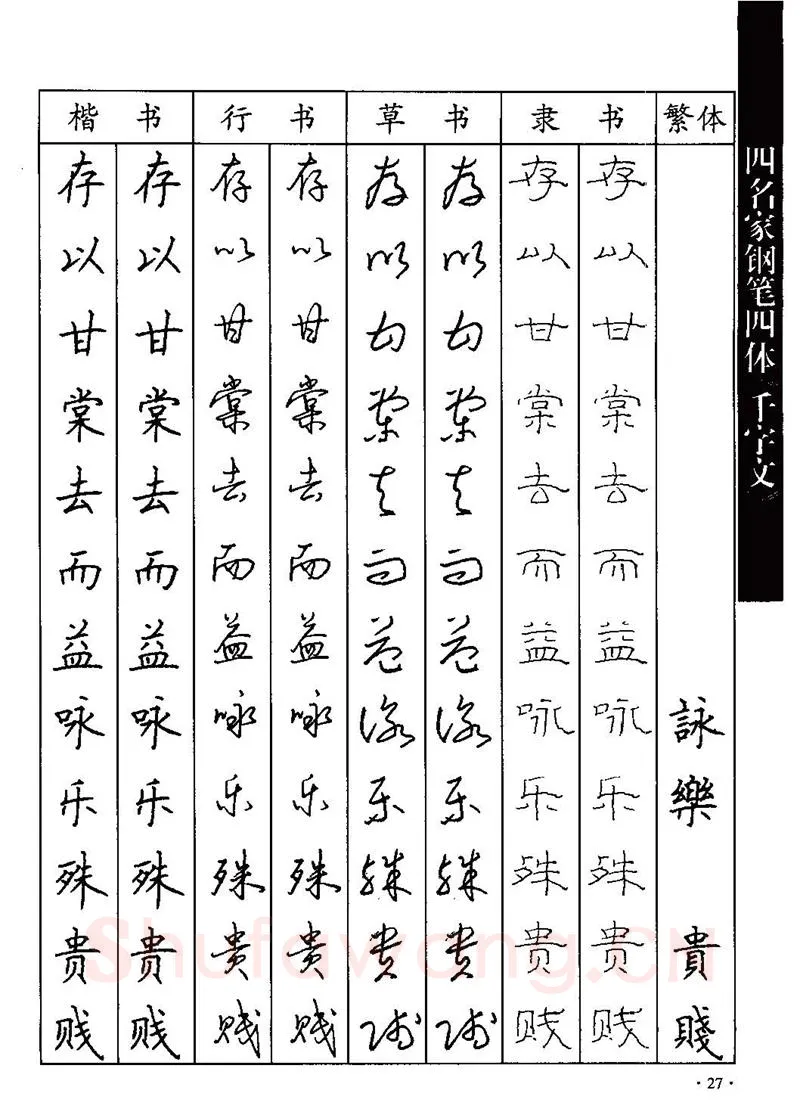 楷书 行书 草书 隶书 繁体
存 存 存 存 存 存 存 存
以 以 以 以 以 以 以 以
甘 甘 甘 甘 甘 甘 甘 甘
棠 棠 棠 棠 棠 棠 棠 棠
去 去 去 去 去 去 去 去
而 而 而 而 而 而 而 而
益 益 益 益 益 益 益 益
咏 咏 咏 咏 咏 咏 咏 咏 詠
乐 乐 乐 乐 乐 乐 乐 乐 樂
殊 殊 殊 殊 殊 殊 殊 殊
贵 贵 贵 贵 贵 贵 贵 贵 貴
贱 贱 贱 贱 贱 贱 贱 贱 賤
四名家钢笔四体 千字文
Shufawang.CN
·27·